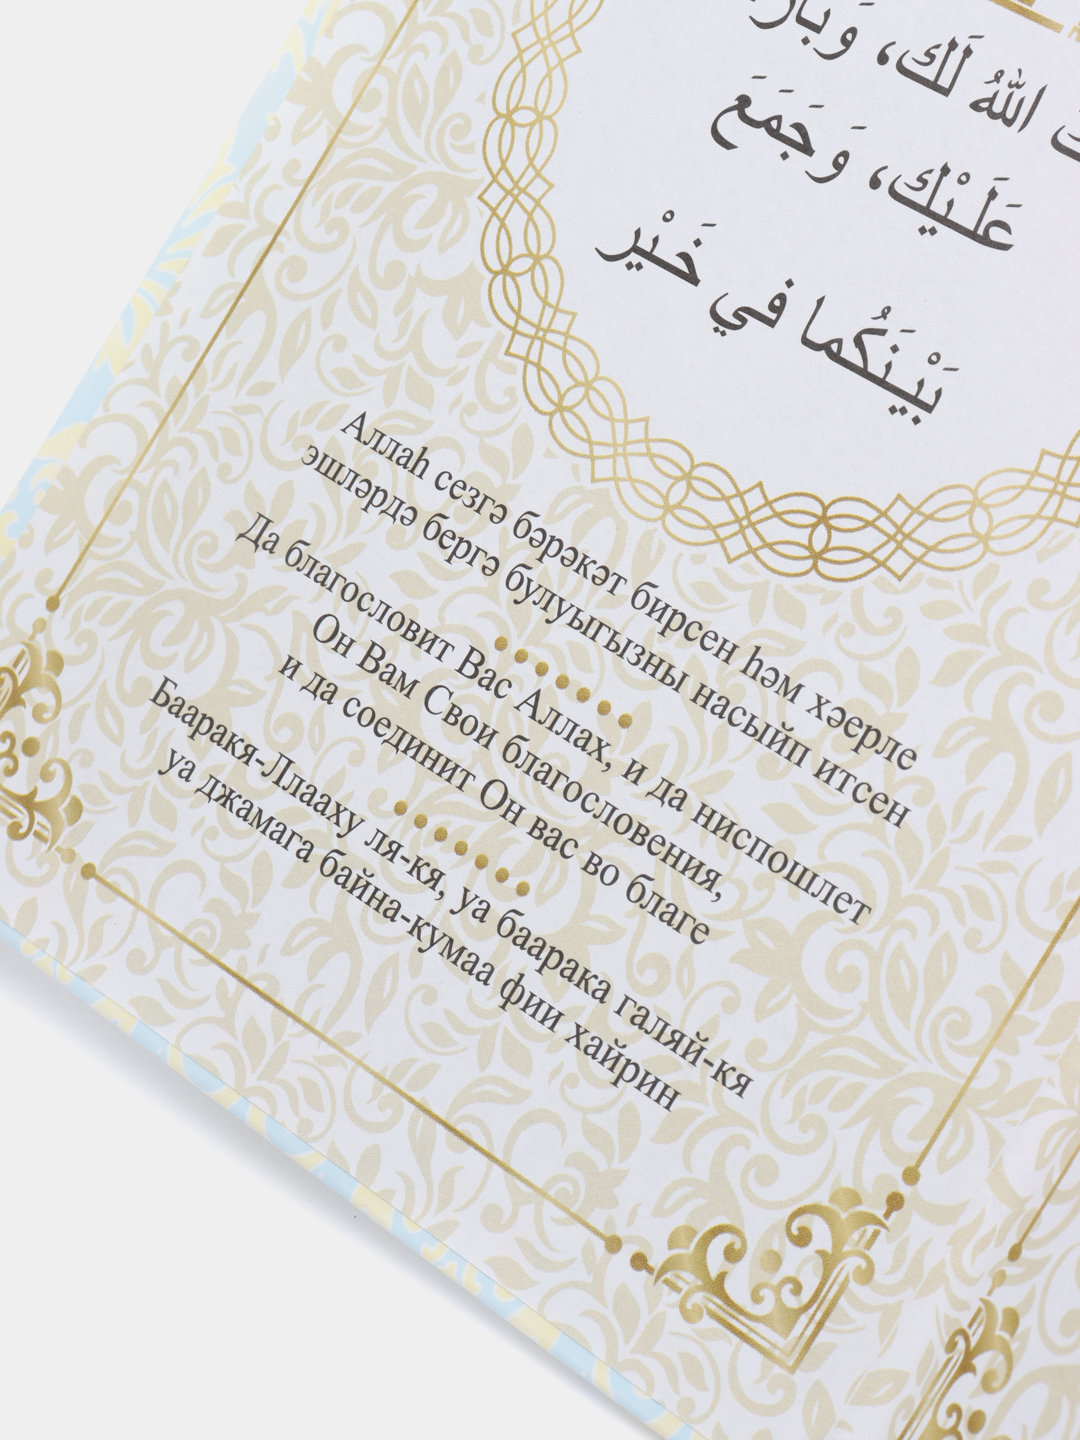 اللهُ لَكَ، وَبَارَ
عَلَـيْكَ، وَجَمَعَ
بَيْـنَكُما في خَـيْرٍ
Аллаһ сезгә бәрәкәт бирсен һәм хәерле
эшләрдә бергә булуыгызны насыйп итсен
Да благословит Вас Аллах, и да ниспошлет
Он Вам Свои благословения,
и да соединит Он вас во благе
Бааракя-Ллааху ля-кя, уа баарака галяй-кя
уа джамага байна-кумаа фии хайрин